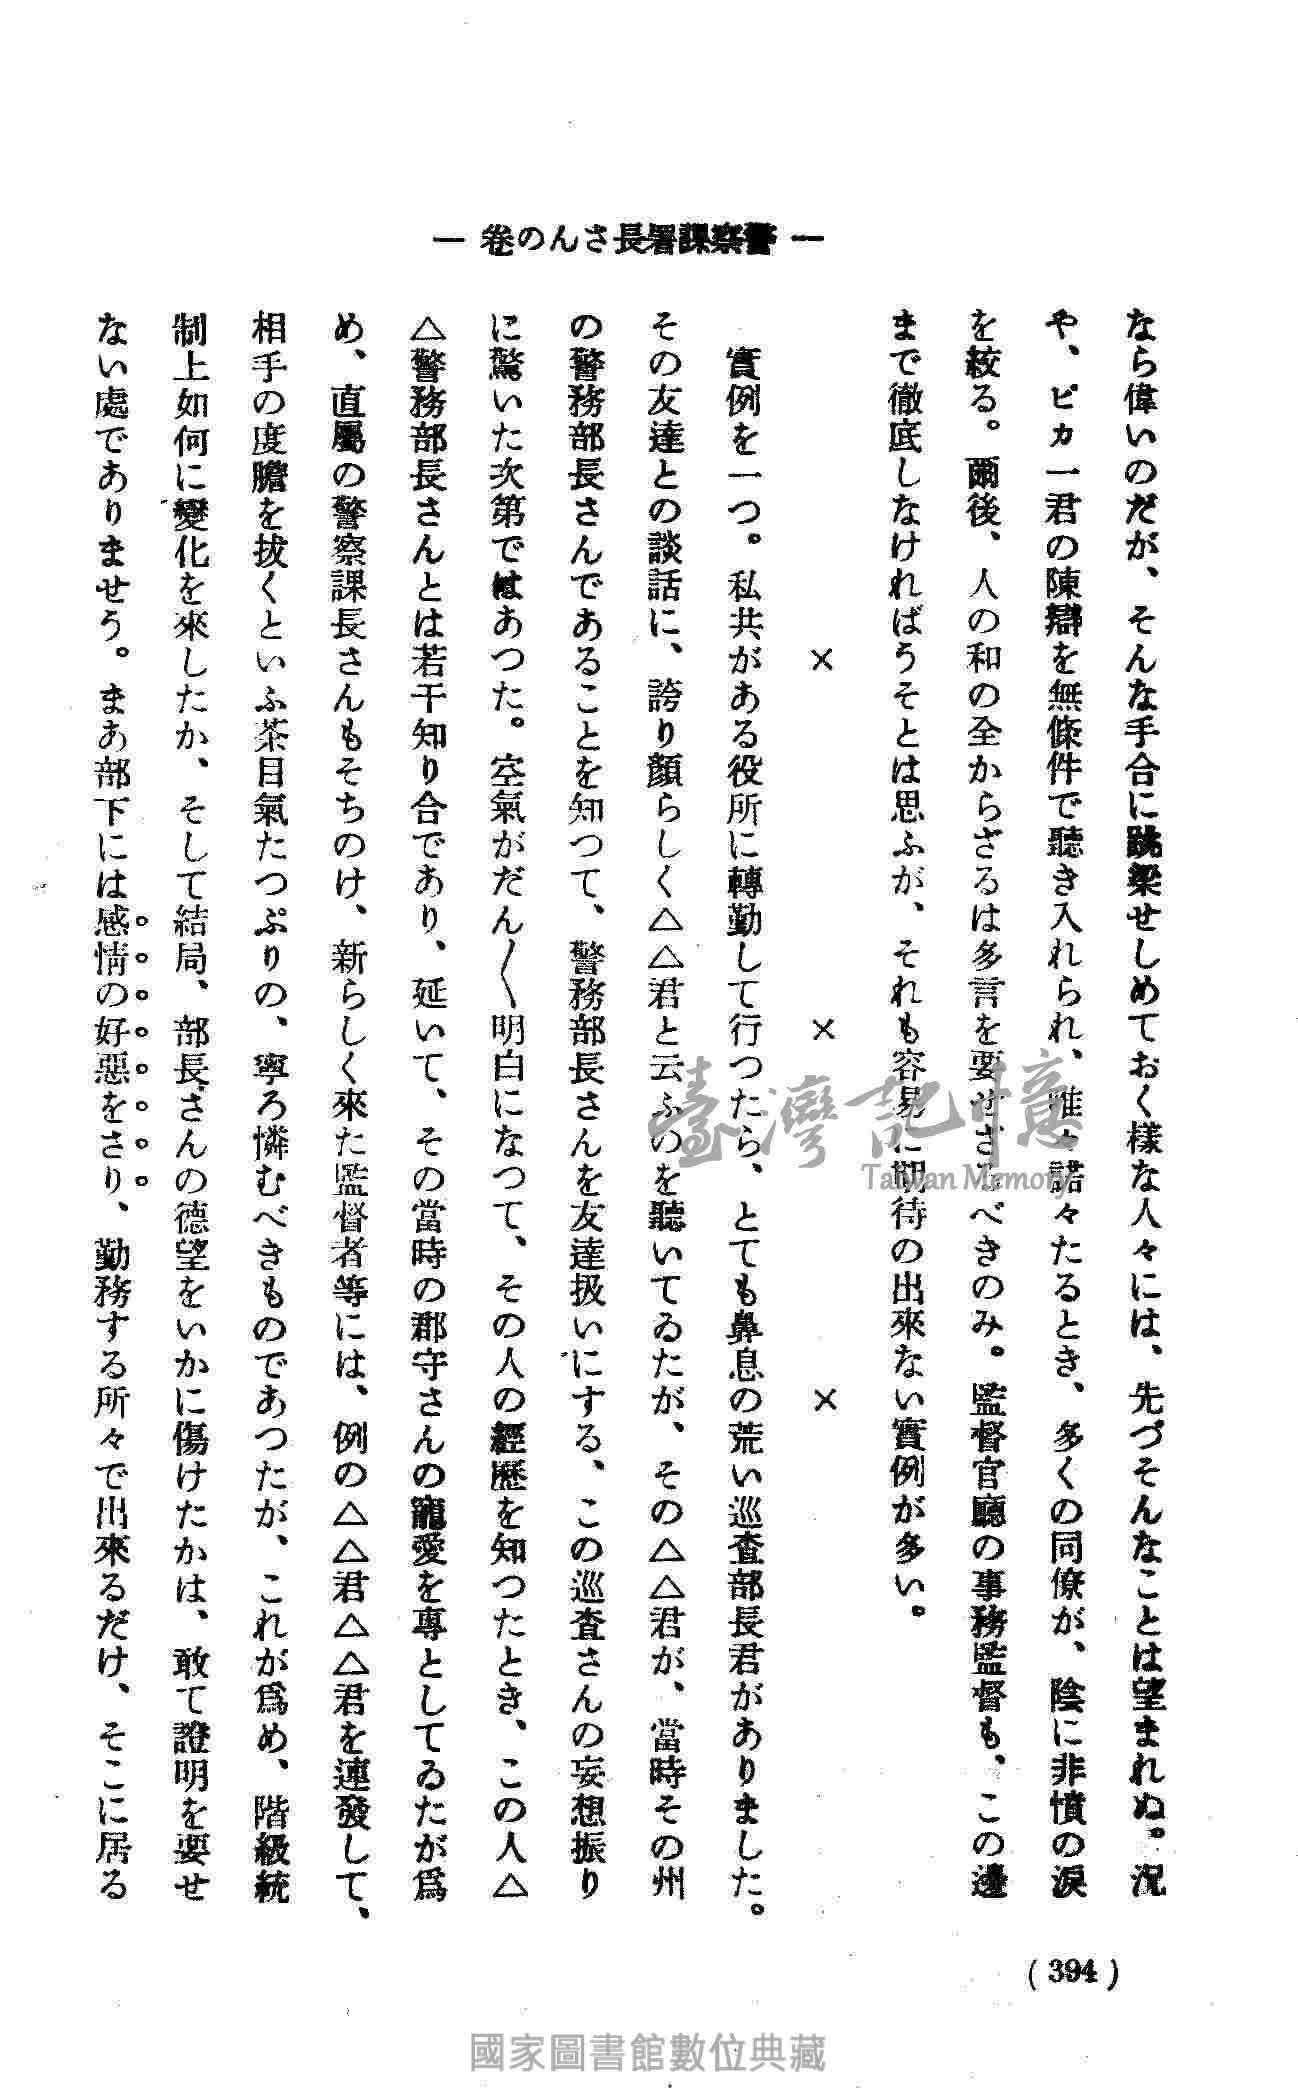 ― 卷のんさ長署課察警 ―
なら偉いのだが、そんな手合に跳梁せしめておく樣な人々には、先づそんなことは望まれぬ。況
や、ピカ一君の陳辯を無條件で聽き入れられ、唯々諾々たるとき、多くの同僚が、陰に非憤の淚
を絞る。爾後、人の和の全からざるは多言を要せざるべきのみ。監督官廳の事務監督も、この邊
まで徹底しなければうそとは思ふが、それも容易に期待の出來ない實例が多い。
× × ×
實例を一つ。私共がある役所に轉勤して行つたら、とても鼻息の荒い巡査部長君がありました。
その友達との談話に、誇り顏らしく△△君と云ふのを聽いてゐたが、その△△君が、當時その州
の警務部長さんであることを知つて、警務部長さんを友達扱いにする、この巡査さんの妄想振り
に驚いた次第ではあつた。空氣がだん〱明白になつて、その人の經歷を知つたとき、この人△
△警務部長さんとは若干知り合であり、延いて、その當時の郡守さんの寵愛を專としてゐたが爲
め、直屬の警察課長さんもそちのけ、新らしく來た監督者等には、例の△△君△△君を連發して、
相手の度膽を拔くといふ茶目氣たつぷりの、寧ろ憐むべきものであつたが、これが爲め、階級統
制上如何に變化を來したか、そして結局、部長さんの德望をいかに傷けたかは、敢て證明を要せ
ない處でありませう。まあ部下には感情の好惡をさり、勤務する所々で出來るだけ、そこに居る
( 394 )
臺灣記憶
Taiwan Memory
國家圖書館數位典藏